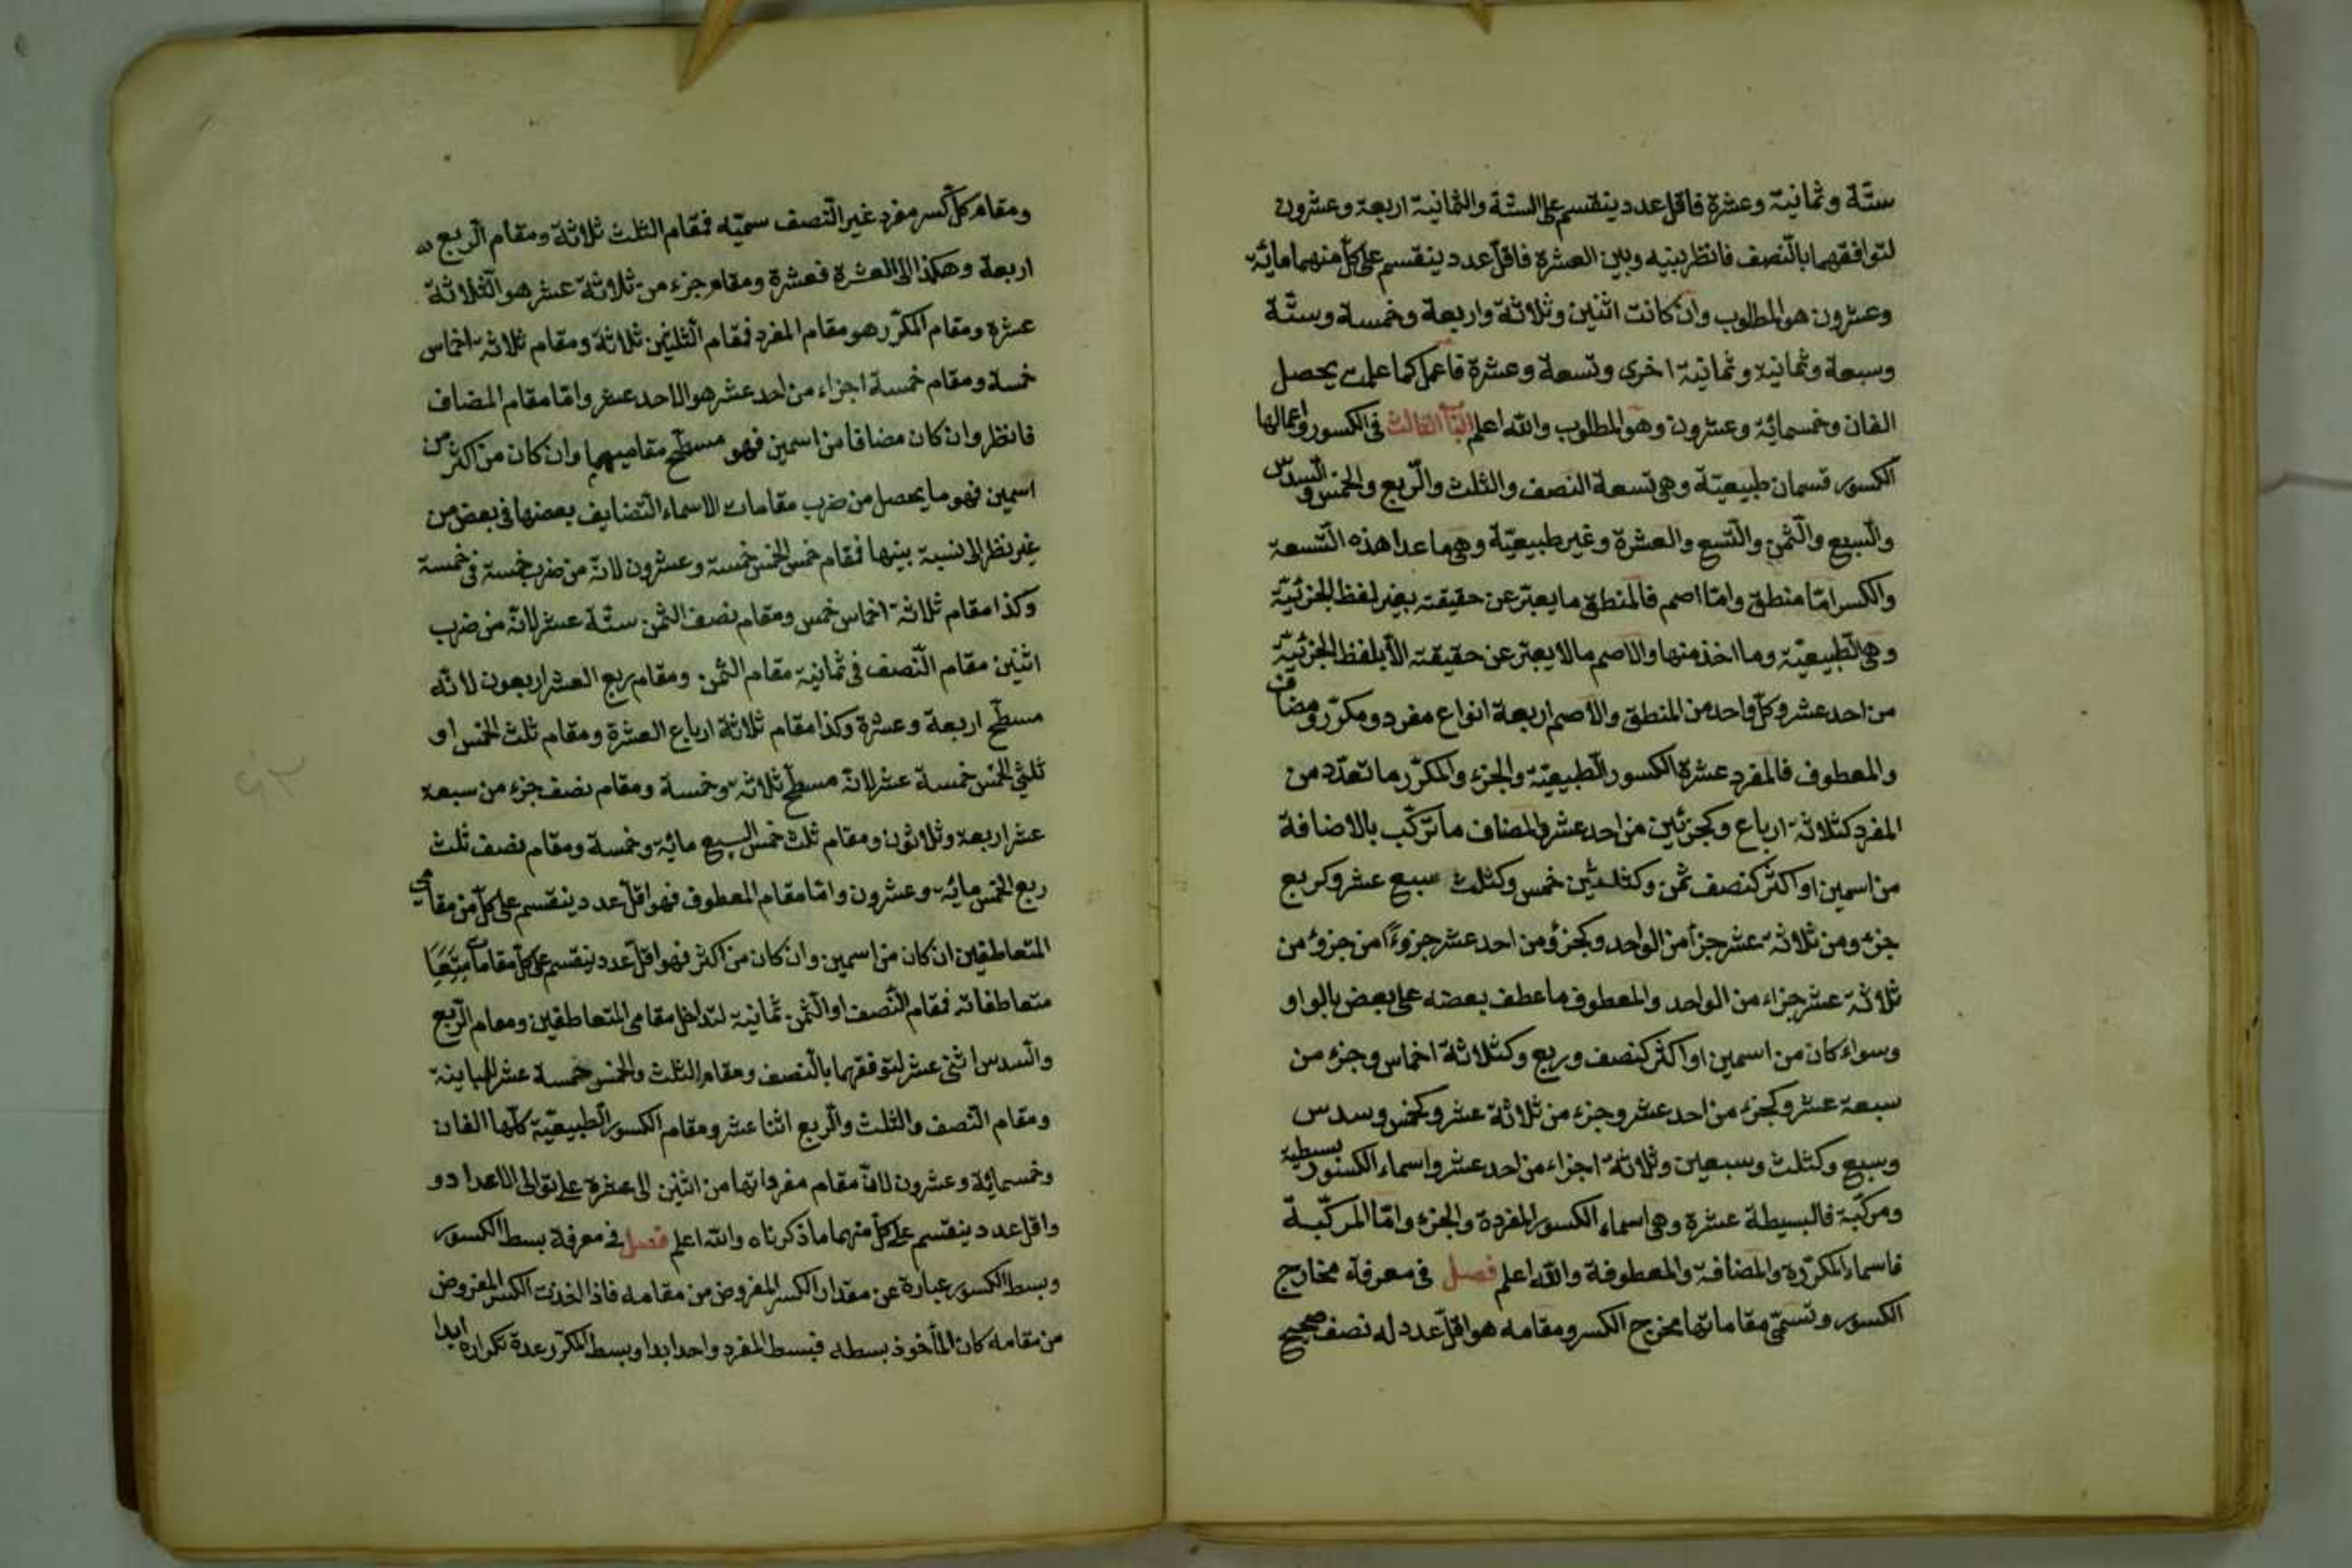 ستّة وثمانية وعشرة فاقل عدد ينقسم على الستّة والثمانية اربعة وعشرون
لتوافقهما بالنّصف فانظر بينه وبين العشرة فاقل عدد ينقسم على كلّ منهما مائة
وعشرون هو المطلوب وان كانت اثنين وثلاثة واربعة وخمسة وستّة
وسبعة وثمانية وثمانية اخرى وتسعة وعشرة فاعمل كما علمت يحصل
الفان وخمسمائة وعشرون وهو المطلوب والله اعلم الباب الثالث في الكسور واعمالها
الكسور قسمان طبيعيّة وهي تسعة النصف والثلث والرّبع والخمس والسدس
والسّبع والثّمن والتّسع والعشرة وغير طبيعيّة وهي ما عدا هذه التّسعة
والكسر امّا منطق وامّا اصم فالمنطق ما يعبّر عن حقيقته بغير لفظ الجزئيّة
وهي الطّبيعيّة وما اخذ منها والاصم ما لا يعبّر عن حقيقته الّا بلفظ الجزئيّة
من احد عشر وكلّ واحد من المنطق والاصم اربعة انواع مفرد ومكرّر ومضاف
والمعطوف فالمفرد عشرة الكسور الطّبيعيّة والجزء والمكرّر ما تعدّد من
المفرد كثلاثة ارباع وكجزئين من احد عشر والمضاف ما تركّب بالاضافة
من اسمين او اكثر كنصف ثمن وكثلثين خمس وكثلث سبع عشر وكربع
جزء ومن ثلاثة عشر جزأ من الواحد وكجزؤ من احد عشر جزوءًا من جزؤ من
ثلاثة عشر جزاء من الواحد والمعطوف ما عطف بعضه على بعض بالواو
وسواء كان من اسمين او اكثر كنصف وربع وكثلاثة اخماس وجزء من
سبعة عشر وكجزء من احد عشر وجزء من ثلاثة عشر وكخمس وسدس
وسبع وكثلث وسبعين وثلاثة اجزاء من احد عشر واسماء الكسور بسيطة
ومركّبة فالبسيطة عشرة وهي اسماء الكسور المفردة والجزء وامّا المركّبة
فاسماء المكرّرة والمضافة والمعطوفة والله اعلم فصل في معرفة مخارج
الكسور وتسمّى مقاماتها مخرج الكسر ومقامه هو اقلّ عدد له نصف صحيح
ومقام كلّ كسر مفرد غير النّصف سميّه فمقام الثلث ثلاثة ومقام الرّبع
اربعة وهكذا الى العشرة فعشرة ومقام جزء من ثلاثة عشر هو الثّلاثة
عشرة ومقام المكرّر هو مقام المفرد فمقام الثّلثين ثلاثة ومقام ثلاثة اخماس
خمسة ومقام خمسة اجزاء من احد عشر هو الاحد عشر وامّا مقام المضاف
فانظر وان كان مضافا من اسمين فهو مسطّح مقاميهما وان كان من اكثر من
اسمين فهو ما يحصل من ضرب مقامات الاسماء التضايف بعضها في بعض من
غير نظر الى نسبة بينها فمقام خمس الخمس خمسة وعشرون لانّه من ضرب خمسة في خمسة
وكذا مقام ثلاثة اخماس خمس ومقام نصف الثمن ستّة عشر لانّه من ضرب
اثنين مقام النّصف في ثمانية مقام الثمن ومقام ربع العشر اربعون لانّه
مسطّح اربعة وعشرة وكذا مقام ثلاثة ارباع العشرة ومقام ثلث الخمس او
ثلثي الخمس خمسة عشر لانّه مسطّح ثلاثة وخمسة ومقام نصف جزء من سبعة
عشر اربعة وثلاثون ومقام ثلث خمس السبع مائة وخمسة ومقام نصف ثلث
ربع الخمس مائة وعشرون وامّا مقام المعطوف فهو اقلّ عدد ينقسم على كلّ من مقامي
المتعاطفين ان كان من اسمين وان كان من اكثر فهو اقلّ عدد ينقسم على كلّ مقامات
متعاطفاته فمقام النّصف او الثّمن ثمانية لتداخل مقامى المتعاطفين ومقام الرّبع
والسّدس اثنى عشر لتوفقهما بالنّصف ومقام الثلث والخمس خمسة عشر للمباينة
ومقام النّصف والثلث والرّبع اثنا عشر ومقام الكسور الطّبيعيّة كلّها الفان
وخمسمائة وعشرون لانّ مقام مفرداتها من اثنين الى عشرة على توالى الاعداد و
واقل عدد ينقسم على كلّ منهما ما ذكرناه والله اعلم فصل في معرفة بسط الكسور
وبسط الكسور عبارة عن مقدار الكسر المفروض من مقامه فاذا اخذت الكسر المفروض
من مقامه كان المأخوذ بسطه فبسط المفرد واحد ابدا وبسط المكرّر عدة تكراره ابدا